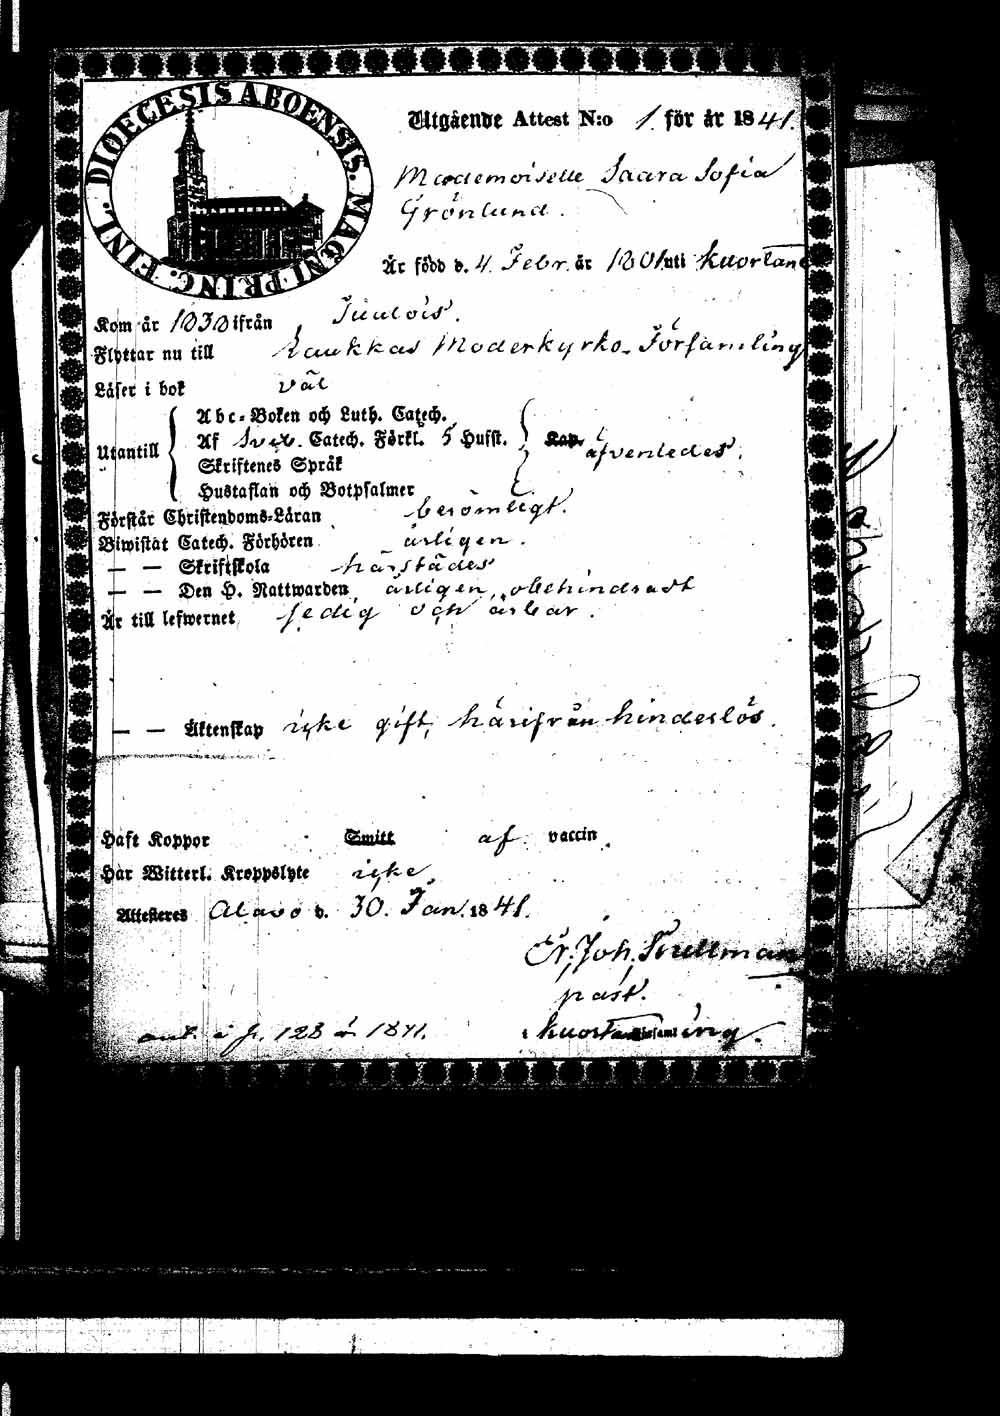 DIOECESIS ABOENSIS. MAGNI PRINC. FINL.
Utgående Attest N:o 1. för år 1841.
Mademoiselle Saara Sofia
Grönlund.
Är född d. 4. Febr. år 1801 uti Kuortane
Kom år 1838 ifrån
Flyttar nu till Laukkas Moderkyrko-Församling
Läser i bok väl
Utantill
Abc-Boken och Luth. Catech.
Af Svex. Catech. Förkl. 5 Husst. Kap. äfvenledes.
Skriftenes Språk
Hustaflan och Botpsalmer
Förstår Christendoms-Läran berömligt.
Biwistat Catech. Förhören årligen.
— — Skriftskola härstädes
— — Den H. Nattwarden årligen, obehindradt
Är till lefwernet sedig och ärbar.
— — Äktenskap icke gift, härifrån hinderslös.
Haft Koppor Smitt af vaccin
Har Witterl. Kroppslyte icke
Attesteres Alavo d. 30. Jan. 1841.
Er. Joh.
past.
i Kuortane
ant. i fr. 128 år 1841.